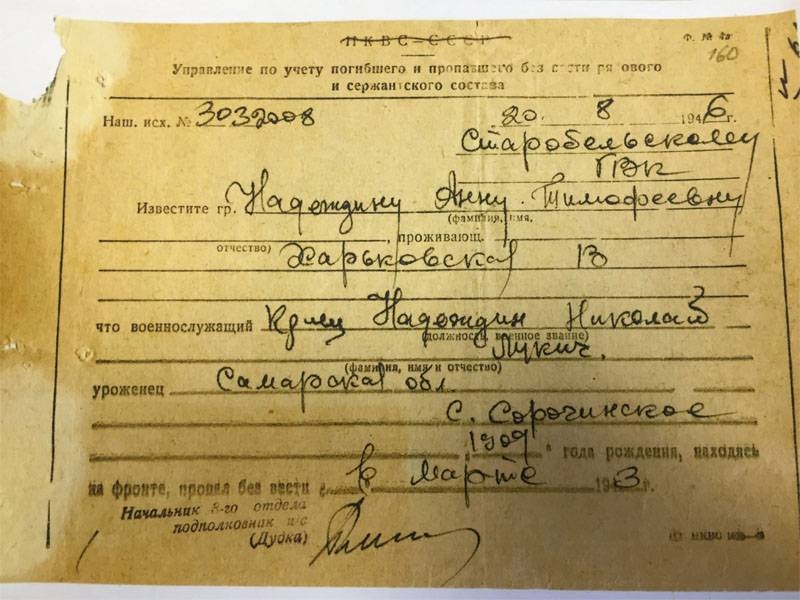 НКВС-СССР
Ф. № 4а
160
Управление по учету погибшего и пропавшего без вести рядового
и сержантского состава
Наш. исх. № 3032008 20. 8 1946г.
Старобельскому
ГВК
Известите гр. Надеждину Анну Тимофеевну
(фамилия, имя,
, проживающ.
отчество)
Харьковская 13
что военнослужащий Кр-мец Надеждин Николай
(должность, военное звание)
Лукич.
(фамилия, имя и отчество)
уроженец Самарская обл.
с. Сорочинское
1909 года рождения, находясь
на фронте, пропал без вести в марте 1943г.
Начальник 8-го отдела
подполковник и/с
(Дудка)